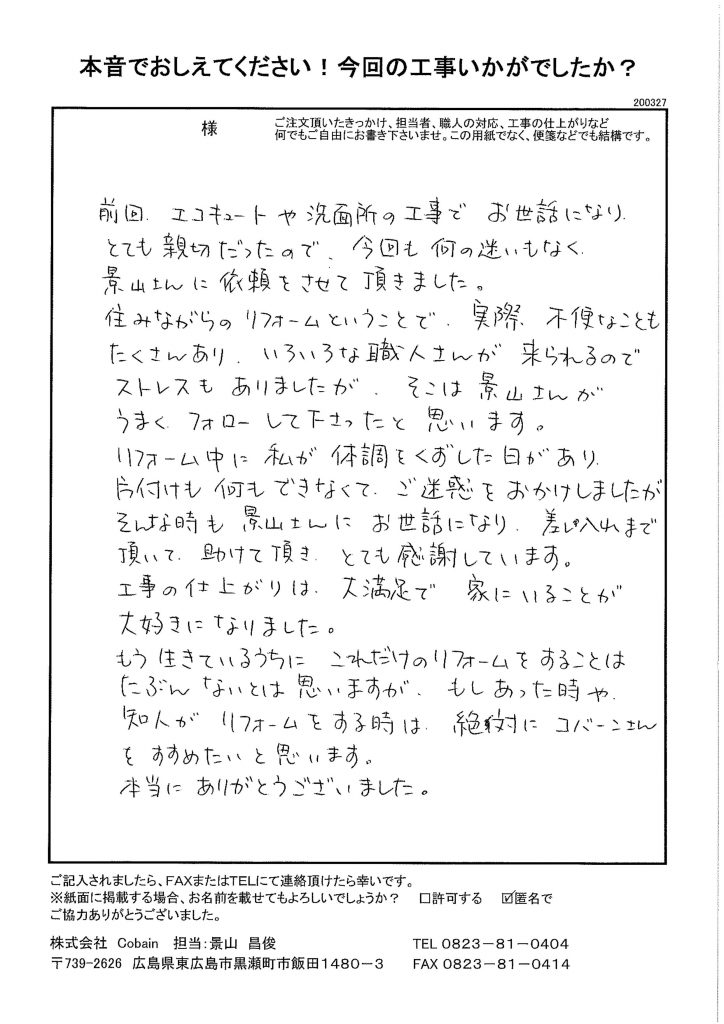 本音でおしえてください！今回の工事いかがでしたか？
200327
様
ご注文頂いたきっかけ、担当者、職人の対応、工事の仕上がりなど
何でもご自由にお書き下さいませ。この用紙でなく、便箋などでも結構です。
前回、エコキュートや洗面所の工事で お世話になり、
とても親切だったので、今回も何の迷いもなく
景山さんに依頼をさせて頂きました。
住みながらのリフォームということで、実際、不便なことも
たくさんあり、いろいろな職人さんが 来られるので
ストレスもありましたが、そこは景山さんが
うまくフォローして下さったと思います。
リフォーム中に私が体調をくずした日があり、
片付けも何もできなくて、ご迷惑をおかけしましたが
そんな時も景山さんにお世話になり、差し入れまで
頂いて、助けて頂き、とても感謝しています。
工事の仕上がりは、大満足で 家にいることが
大好きになりました。
もう生きているうちに これだけのリフォームをすることは
たぶんないとは思いますが、もしあった時や、
知人がリフォームをする時は、絶対にコバーンさん
をすすめたいと思います。
本当にありがとうございました。
ご記入されましたら、FAXまたはTELにて連絡頂けたら幸いです。
※紙面に掲載する場合、お名前を載せてもよろしいでしょうか？ □許可する ☑匿名で
ご協力ありがとうございました。
株式会社 Cobain 担当：景山 昌俊 TEL 0823－81－0404
〒739-2626 広島県東広島市黒瀬町市飯田1480－3 FAX 0823－81－0414